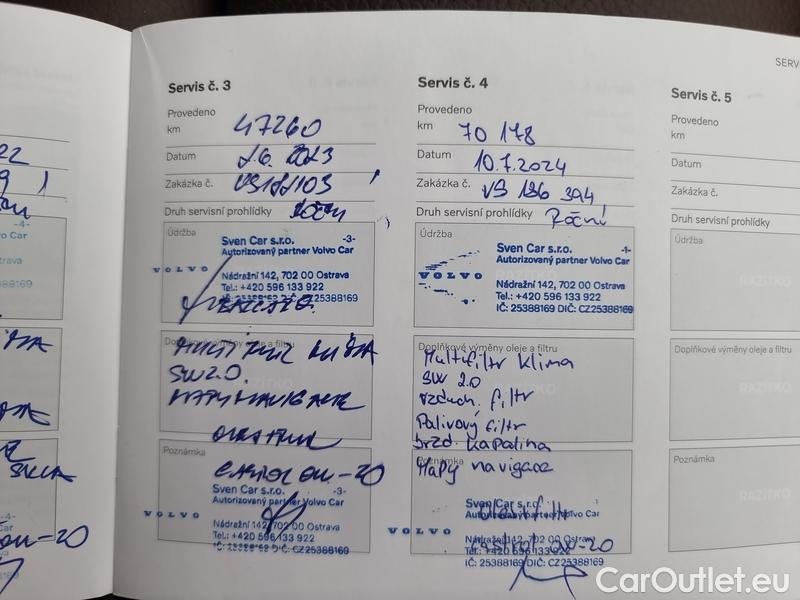 SERV
Servis č. 3
Provedeno
km 47260
Datum 2.6. 2023
Zakázka č. VS181103
Druh servisní prohlídky Roční
Údržba
Sven Car s.r.o. -3-
Autorizovaný partner Volvo Car
VOLVO
Nádražní 142, 702 00 Ostrava
Tel.: +420 596 133 922
IČ: 25388169 DIČ: CZ25388169
Doplňkové výměny oleje a filtru
MULTIFILTR KLIMA
SW 2.0
MAPY NAVIGACE
Poznámka
CASTROL 0W-20
Sven Car s.r.o. -3-
Autorizovaný partner Volvo Car
VOLVO
Nádražní 142, 702 00 Ostrava
Tel.: +420 596 133 922
IČ: 25388169 DIČ: CZ25388169
Servis č. 4
Provedeno
km 70 178
Datum 10.7.2024
Zakázka č. VS 186 394
Druh servisní prohlídky Roční
Údržba
Sven Car s.r.o. -1-
Autorizovaný partner Volvo Car
VOLVO
RAZÍTKO
Nádražní 142, 702 00 Ostrava
Tel.: +420 596 133 922
IČ: 25388169 DIČ: CZ25388169
Doplňkové výměny oleje a filtru
Multifiltr klima
SW 2.0
vzduch. filtr
RAZÍTKO
Palivový filtr
brzd. kapalina
Poznámka
Mapy navigace
Sven Car s.r.o.
Olej filtr
Autorizovaný partner Volvo Car
VOLVO
Nádražní 142, 702 00 Ostrava
Castrol 0W-20
Tel.: +420 596 133 922
IČ: 25388169 DIČ: CZ25388169
Servis č. 5
Provedeno
km
Datum
Zakázka č.
Druh servisní prohlídky
Údržba
RAZÍTKO
Doplňkové výměny oleje a filtru
RAZÍTKO
Poznámka
RAZÍTKO
22
-4-
vo Car
ava
88169
0W-20
CarOutlet.eu